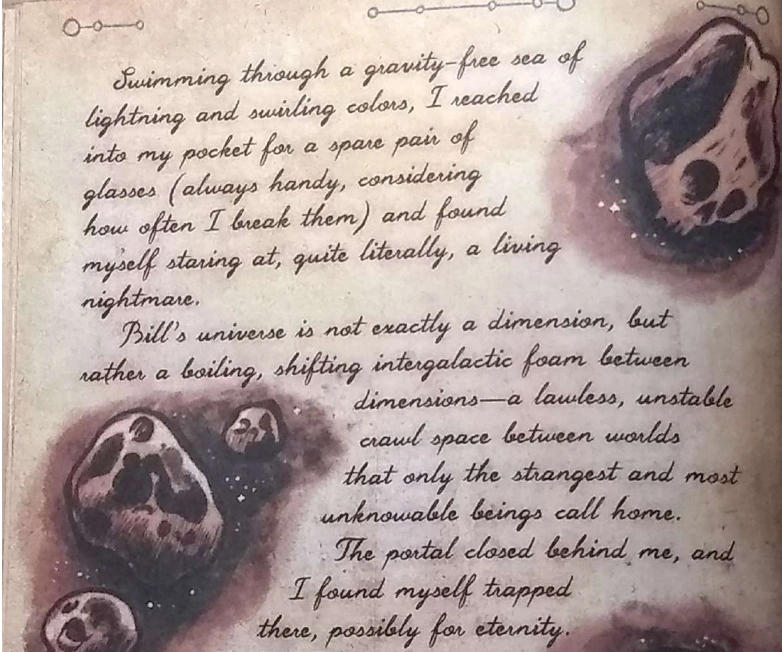 Swimming through a gravity-free sea of
lightning and swirling colors, I reached
into my pocket for a spare pair of
glasses (always handy, considering
how often I break them) and found
myself staring at, quite literally, a living
nightmare.
Bill's universe is not exactly a dimension, but
rather a boiling, shifting intergalactic foam between
dimensions—a lawless, unstable
crawl space between worlds
that only the strangest and most
unknowable beings call home.
The portal closed behind me, and
I found myself trapped
there, possibly for eternity.